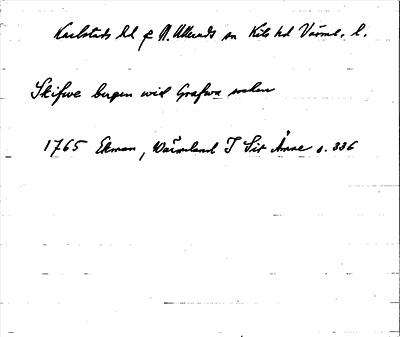 Karlstads lt f. N. Ulleruds sn Kils hd Värml. l.
Skifwe bergen wid Grafwa
1765 Ekman, Wärmland I Sit Änne s. 336